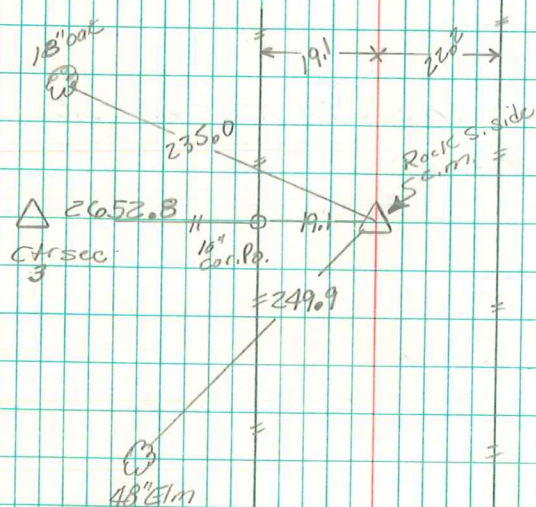 18" oak
19.1
22.2
235.0
Rock S. side
S c.m.
2652.8
19.1
Ctr sec
3
16"
Cor. Po.
249.9
48" Elm